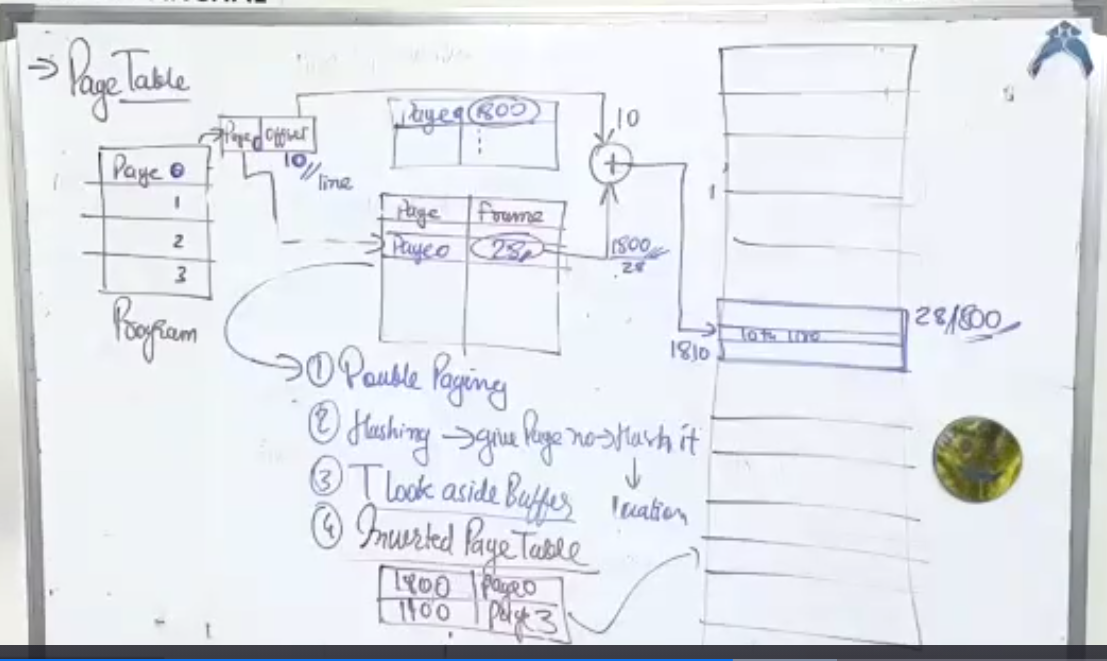 → Page Table
Page 0
1
2
3
Program
Page 0 offset
10 // line
Page 0 1800
Page Frame
Page 0 28
10
1800
28
28/1800
10th line
1810
① Double Paging
② Hashing → give Page no → Hash it
↓
location
③ T Look aside Buffer
④ Inverted Page Table
1800 Page 0
1900 Page 3